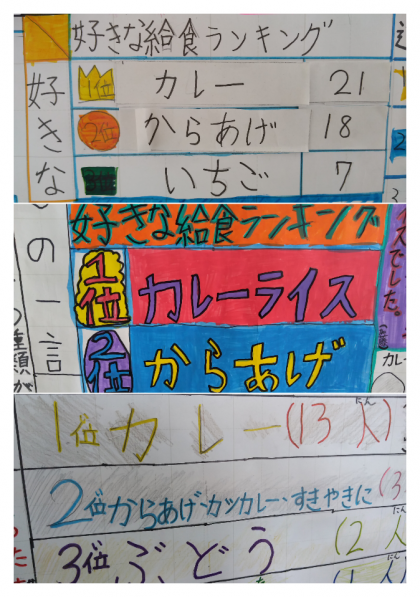 好きな給食ランキング
好きな
1位 カレー 21
2位 からあげ 18
いちご 7
好きな給食ランキング
の一言
種類が
1位 カレーライス
2位 からあげ
イズでした。
カレー
1位カレー(13人)
にん
2位からあげ・カツカレー・すきやきに(3
にん
3位ぶどう(2人
にん